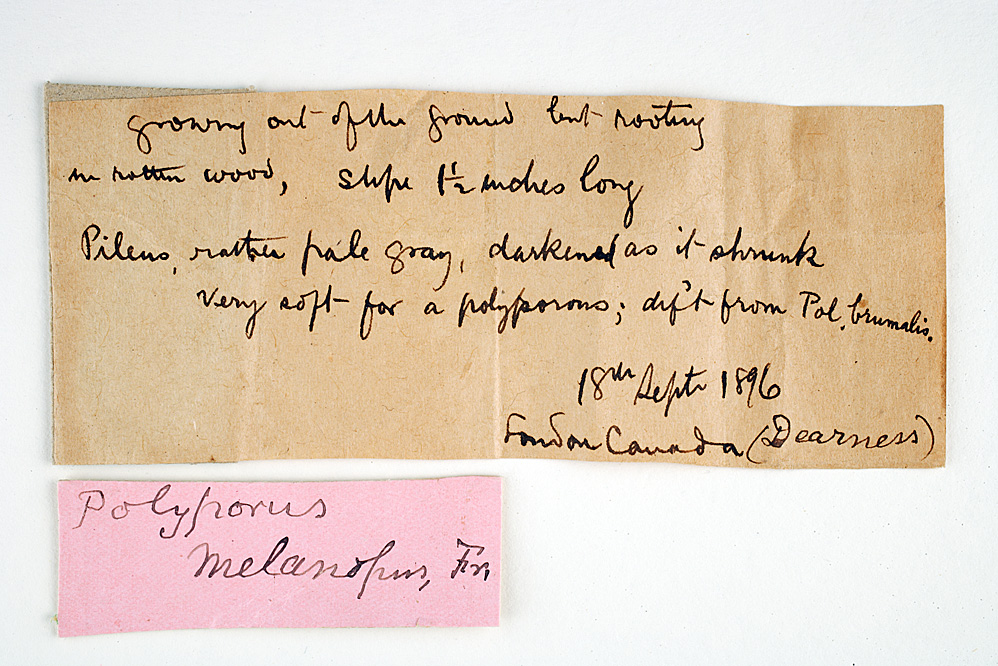 growing out of the ground but rooting
in rotten wood, stipe 1½ inches long
Pileus, rather pale gray, darkened as it shrunk
very soft for a polyporous; dif't from Pol. brumalis.
18th Sept 1896
London Canada (Dearness)
Polyporus
melanopus, Fr.